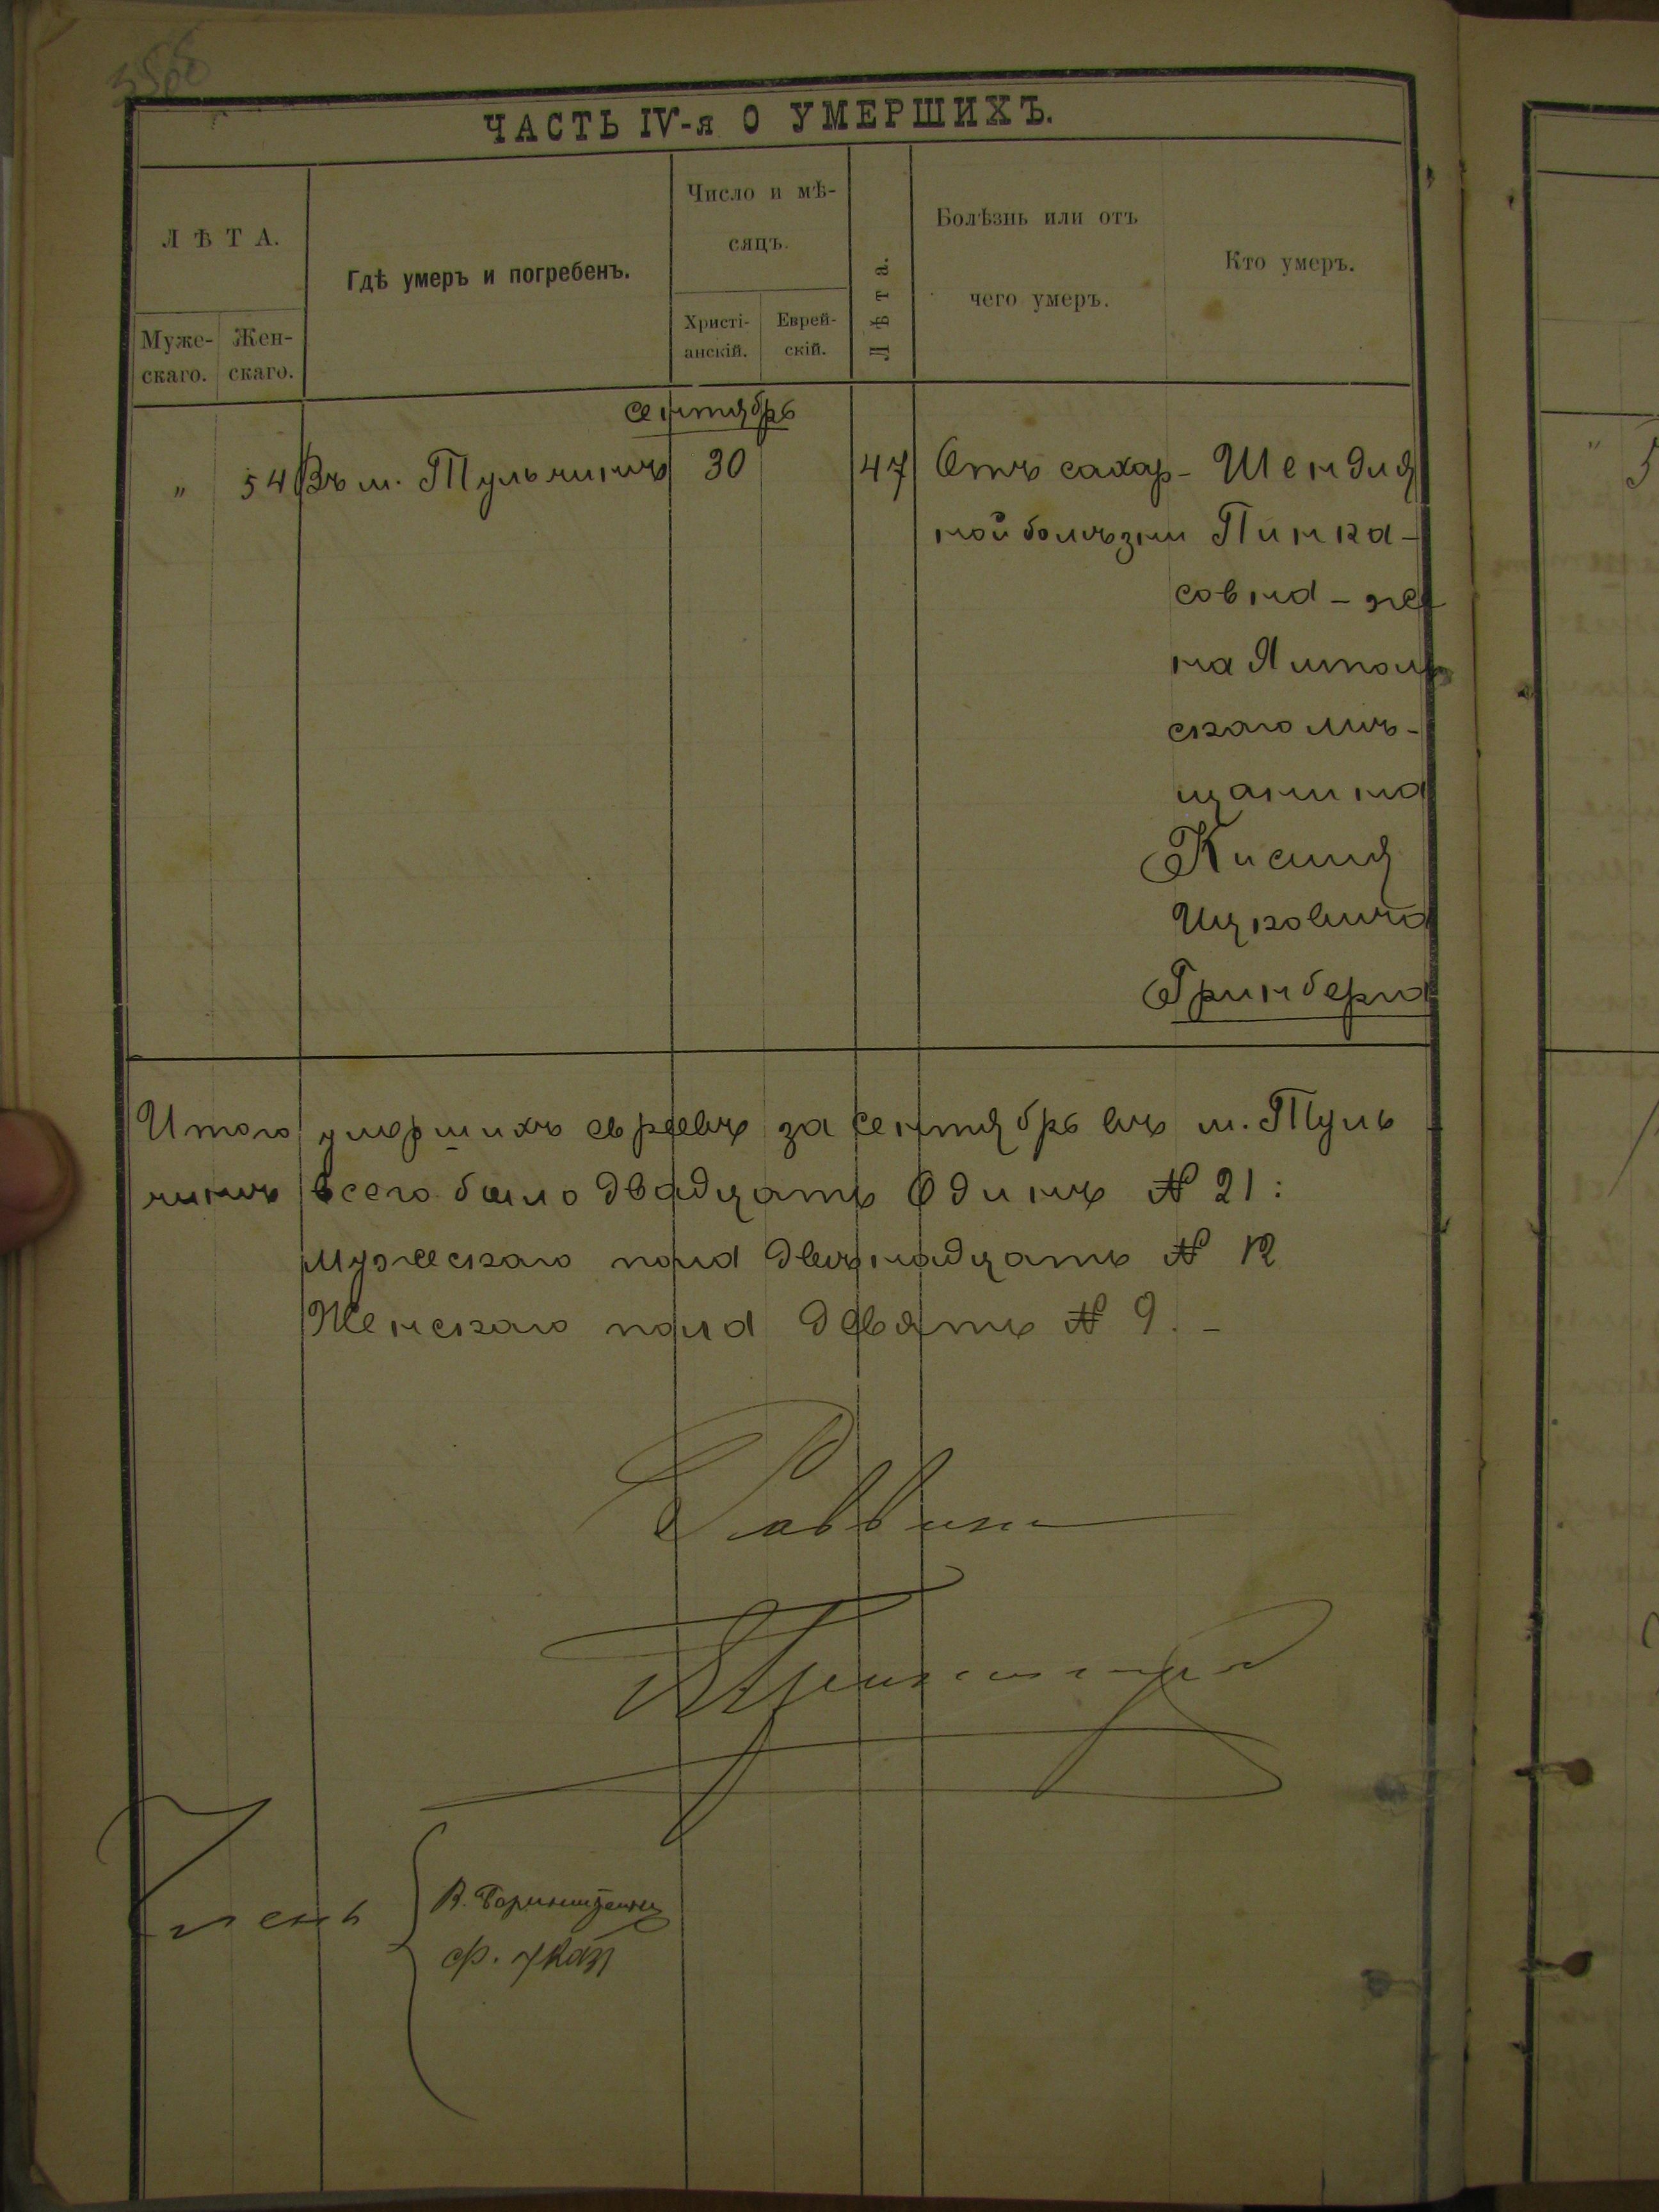 ЧАСТЬ IV-я О УМЕРШИХЪ.
ЛѢТА.
Муже-
скаго.
Жен-
скаго.
Гдѣ умеръ и погребенъ.
Число и мѣ-
сяцъ.
Христі-
анскій.
Еврей-
скій.
Лѣта.
Болѣзнь или отъ
чего умеръ.
Кто умеръ.
сентябрь
" 54 Въ м. Тульчинѣ 30 47 Отъ сахар- Шендля
ной болѣзни Пинка-
совна - же
на Ямполь
скаго мѣ-
щанина
Кисиля
Ицковича
Гринберга
Итого умершихъ евреевъ за сентябрь въ м. Туль
чинѣ всего было двадцать одинъ № 21:
мужескаго пола двѣнадцать № 12
Женскаго пола девять № 9. -
Раввинъ